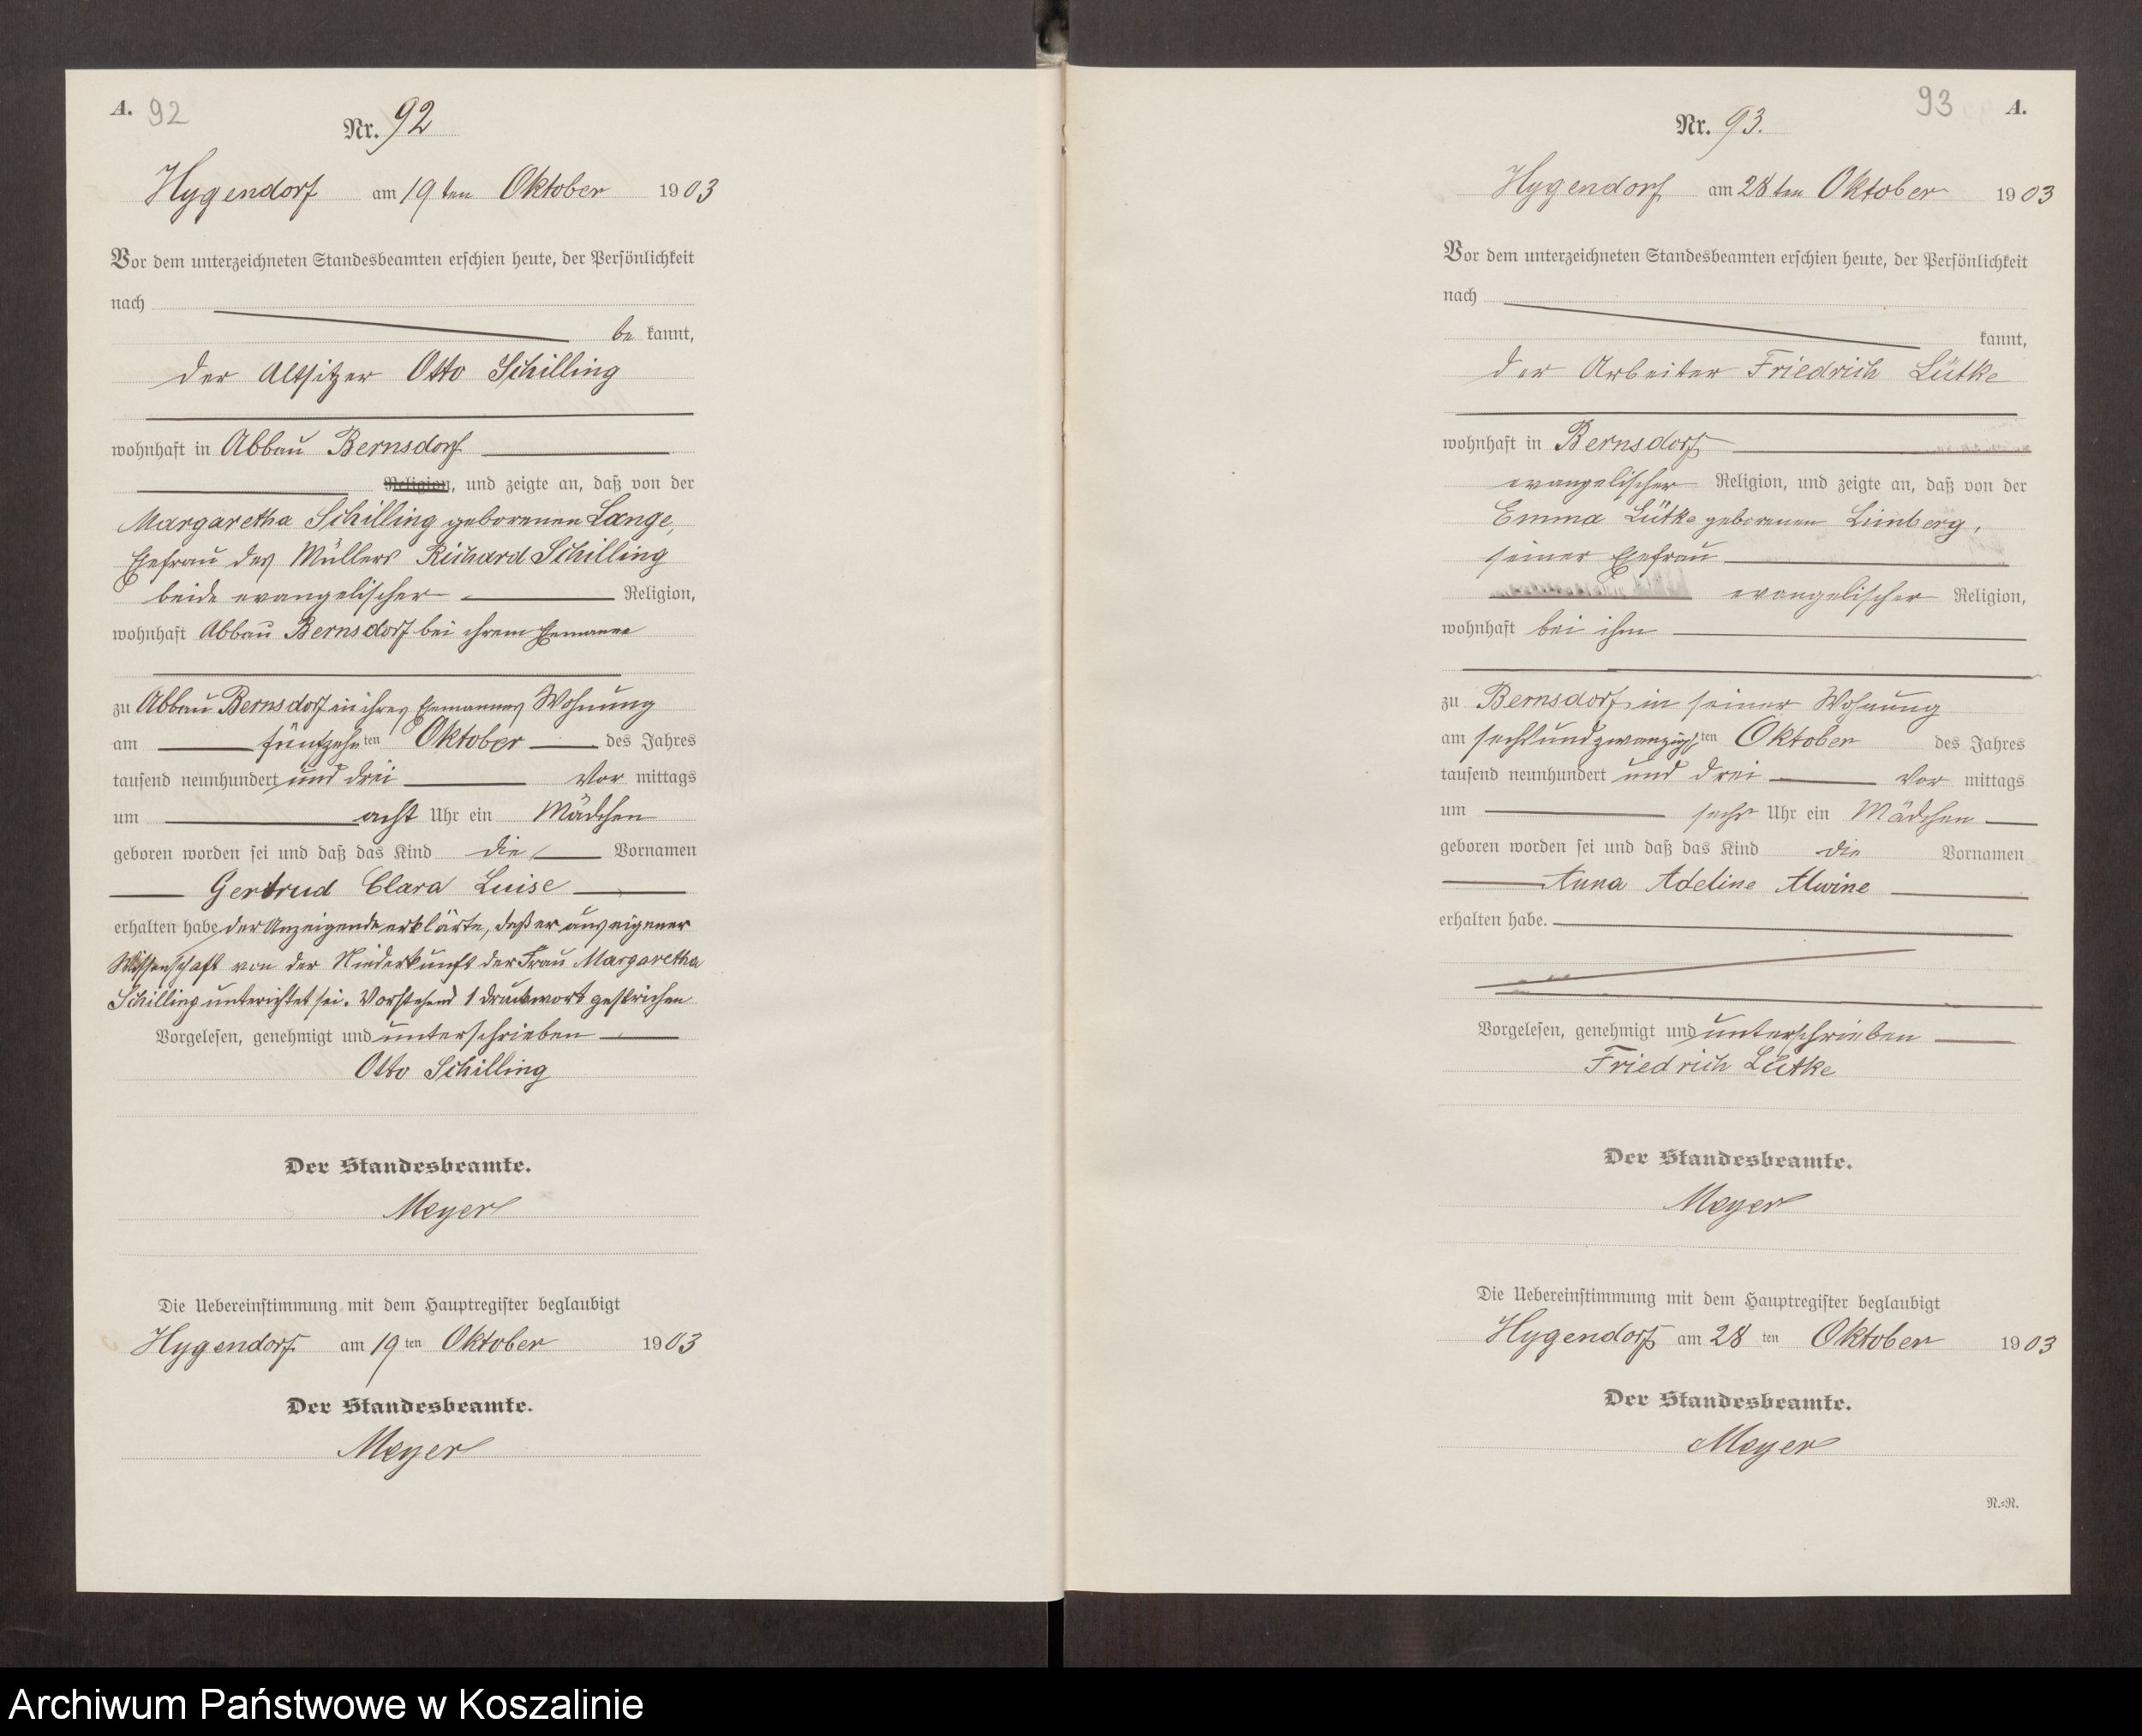 A. 92
Nr. 92
Hygendorf am 19 ten Oktober 1903
Vor dem unterzeichneten Standesbeamten erschien heute, der Persönlichkeit
nach
be kannt,
der Altsitzer Otto Schilling
wohnhaft in Abbau Bernsdorf
Religion, und zeigte an, daß von der
Margaretha Schilling geborenen Lange,
Ehefrau des Müllers Richard Schilling
beide evangelischer Religion,
wohnhaft Abbau Bernsdorf bei ihrem Ehemanne
zu Abbau Bernsdorf in ihres Ehemannes Wohnung
am fünfzehn ten Oktober des Jahres
tausend neunhundert und drei Vor mittags
um acht Uhr ein Mädchen
geboren worden sei und daß das Kind die Vornamen
Gertrud Clara Luise
erhalten habe der Anzeigende erklärte, daß er aus eigener
Wissenschaft von der Niederkunft der Frau Margaretha
Schilling unterichtet sei. Vorstehend 1 Druckwort gestrichen
Vorgelesen, genehmigt und unterschrieben
Otto Schilling
Der Standesbeamte.
Meyer
Die Uebereinstimmung mit dem Hauptregister beglaubigt
Hygendorf am 19 ten Oktober 1903
Der Standesbeamte.
Meyer
93 A.
Nr. 93.
Hygendorf am 28 ten Oktober 1903
Vor dem unterzeichneten Standesbeamten erschien heute, der Persönlichkeit
nach
kannt,
der Arbeiter Friedrich Lütke
wohnhaft in Bernsdorf
evangelischer Religion, und zeigte an, daß von der
Emma Lütke geborenen Limberg,
seiner Ehefrau
evangelischer Religion,
wohnhaft bei ihm
zu Bernsdorf in seiner Wohnung
am sechsundzwanzigs ten Oktober des Jahres
tausend neunhundert und drei Vor mittags
um sechs Uhr ein Mädchen
geboren worden sei und daß das Kind die Vornamen
Anna Adeline Alwine
erhalten habe.
Vorgelesen, genehmigt und unterschrieben
Friedrich Lütke
Der Standesbeamte.
Meyer
Die Uebereinstimmung mit dem Hauptregister beglaubigt
Hygendorf am 28 ten Oktober 1903
Der Standesbeamte.
Meyer
N.=R.
Archiwum Państwowe w Koszalinie